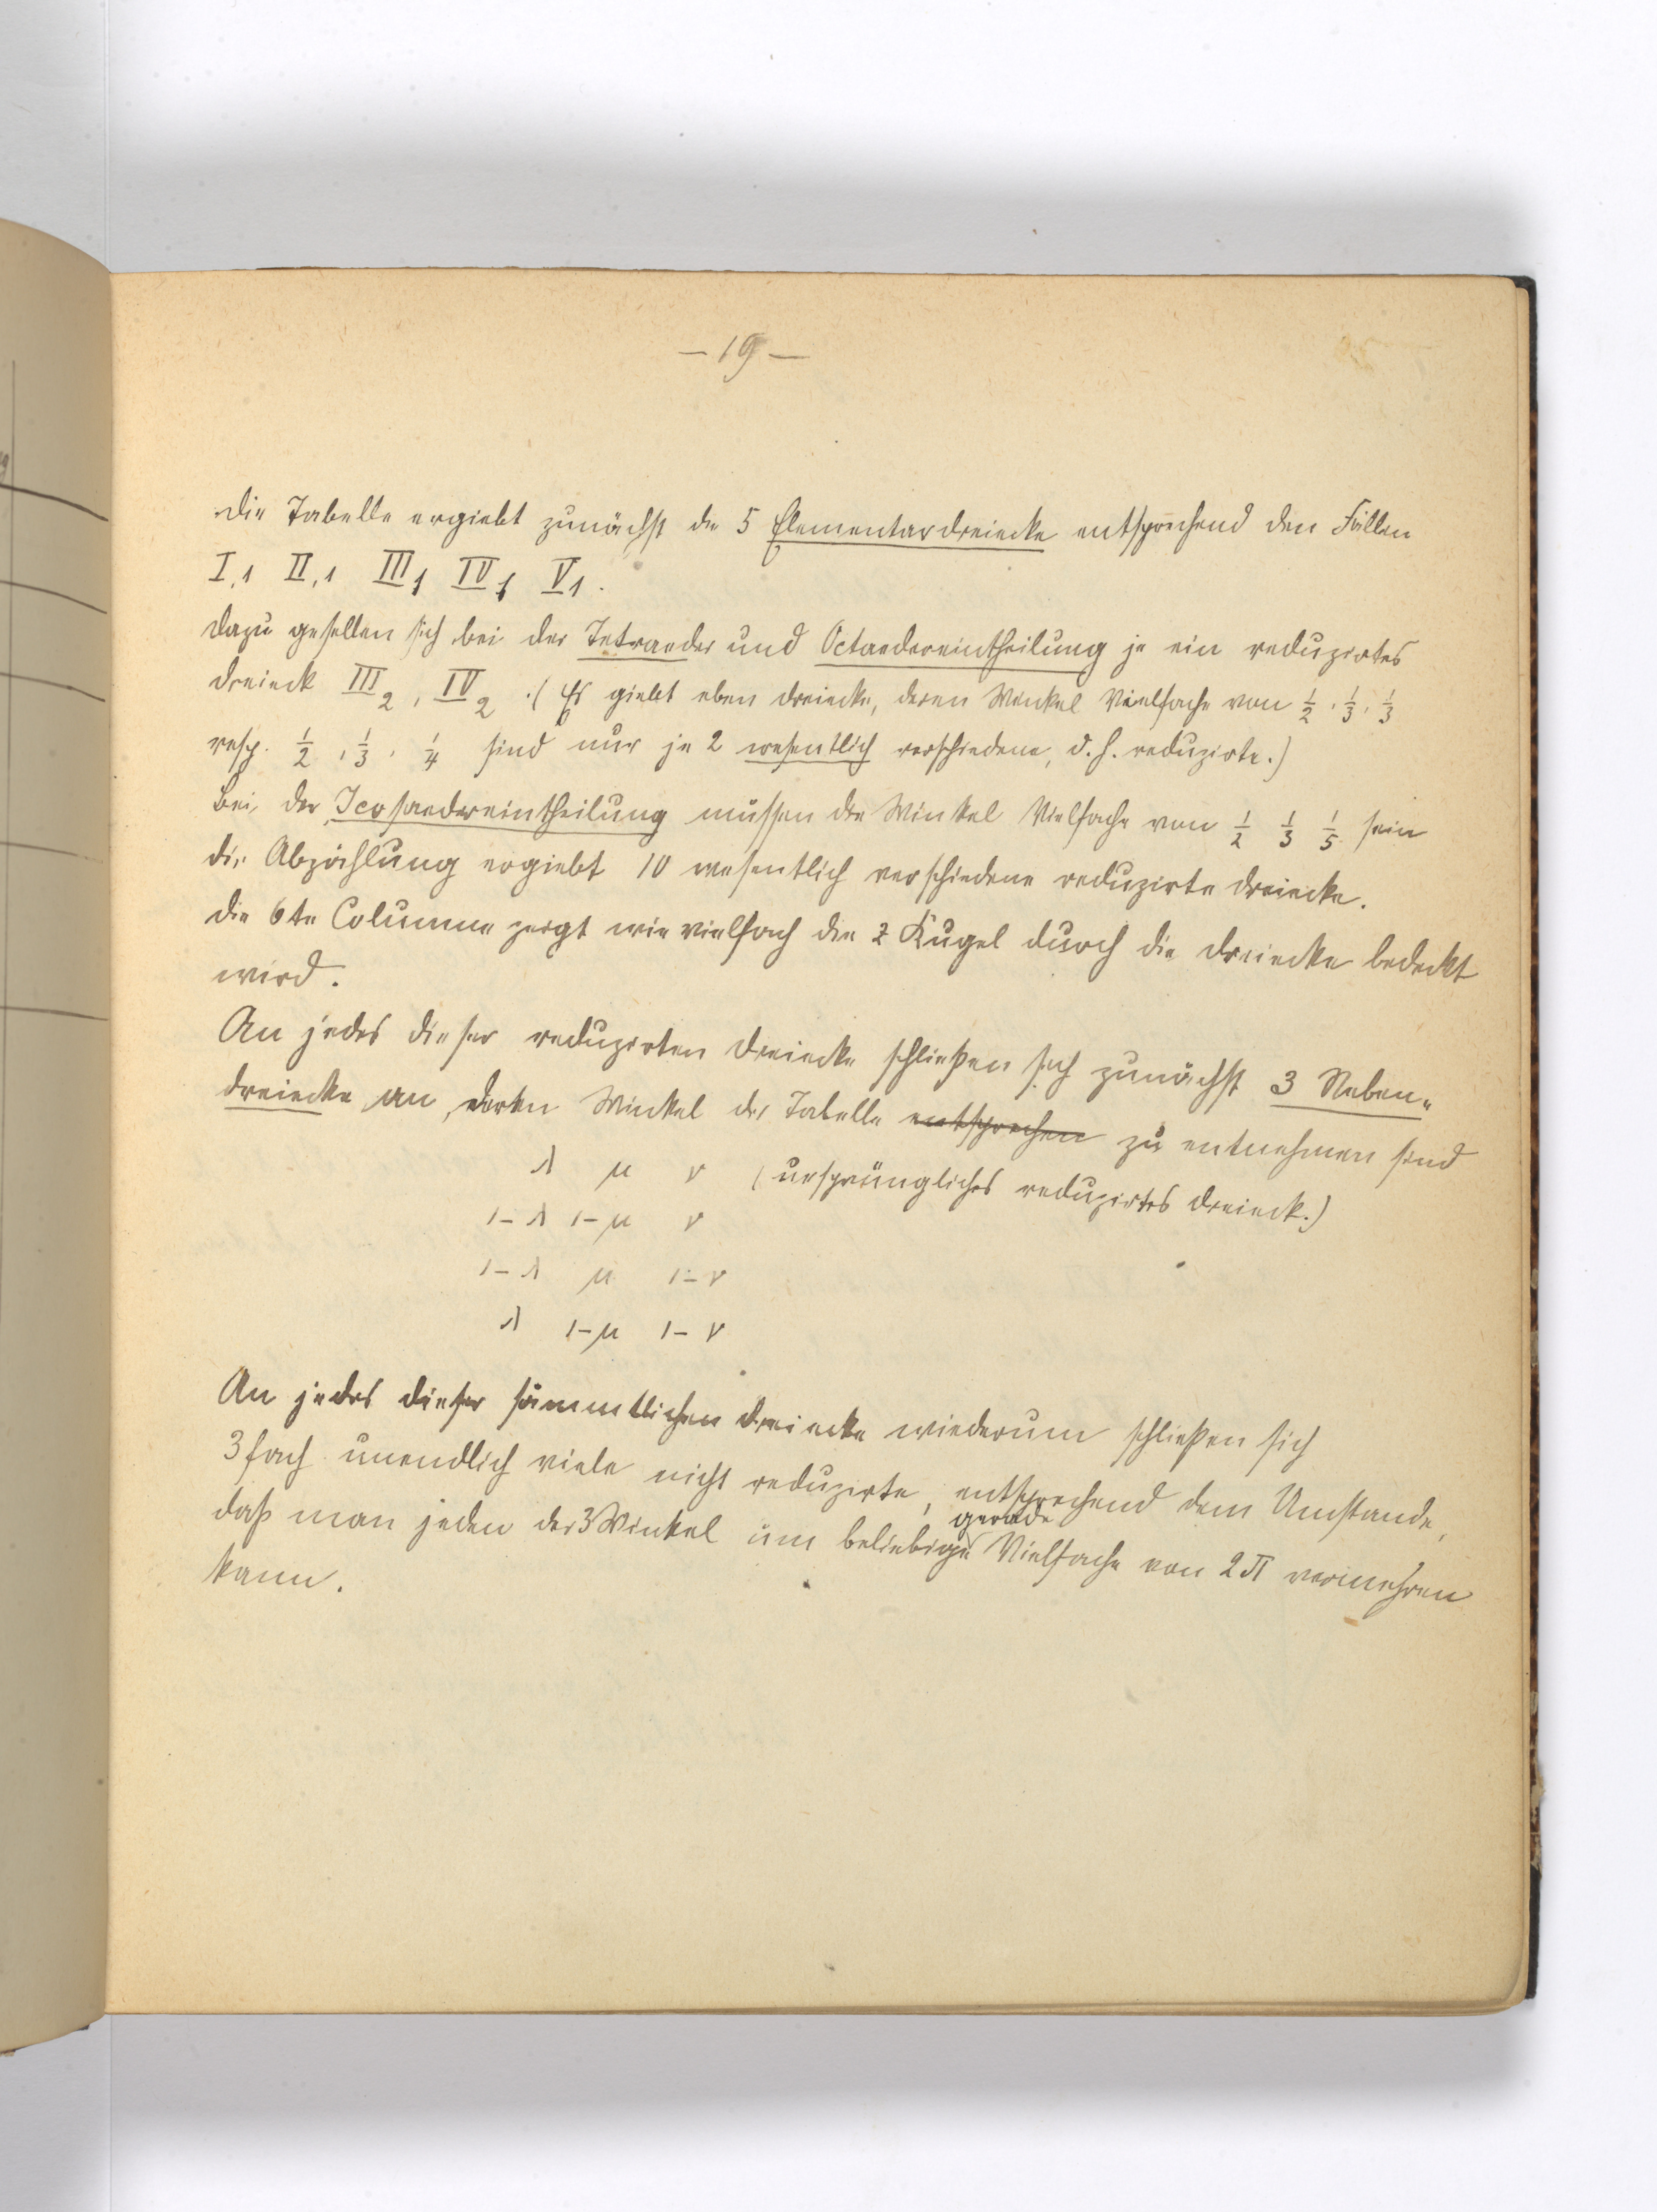 — 19 —
Die Tabelle ergiebt zunächst die 5 Elementardreiecke entsprechend den Fällen
I,1 II,1 III1 IV1 V1.
Dazu gesellen sich bei der Tetraeder und Octaedereintheilung je ein reduzirtes
Dreieck III2, IV2. (Es giebt eben Dreiecke, deren Winkel Vielfache von 1/2, 1/3, 1/3
resp. 1/2, 1/3, 1/4 sind nur je 2 wesentlich verschiedene, d.h. reduzirte.)
Bei der Icosaedereintheilung müssen die Winkel Vielfache von 1/2 1/3 1/5 sein
die Abzählung ergiebt 10 wesentlich verschiedene reduzirte Dreiecke.
Die 6te Columne zeigt wie vielfach die z Kugel durch die Dreiecke bedeckt
wird.
An jedes dieser reduzirten Dreiecke schließen sich zunächst 3 Neben-
dreiecke an, deren Winkel der Tabelle entsprechen zu entnehmen sind
λ μ ν (ursprüngliches reduzirtes Dreieck.)
1-λ 1-μ ν
1-λ μ 1-ν
λ 1-μ 1-ν
An jedes dieser sämmtlichen Dreiecke wiederum schließen sich
3fach unendlich viele nicht reduzirte, entsprechend dem Umstande,
gerade
daß man jeden der 3 Winkel um beliebige Vielfache von 2π vermehren
kann.